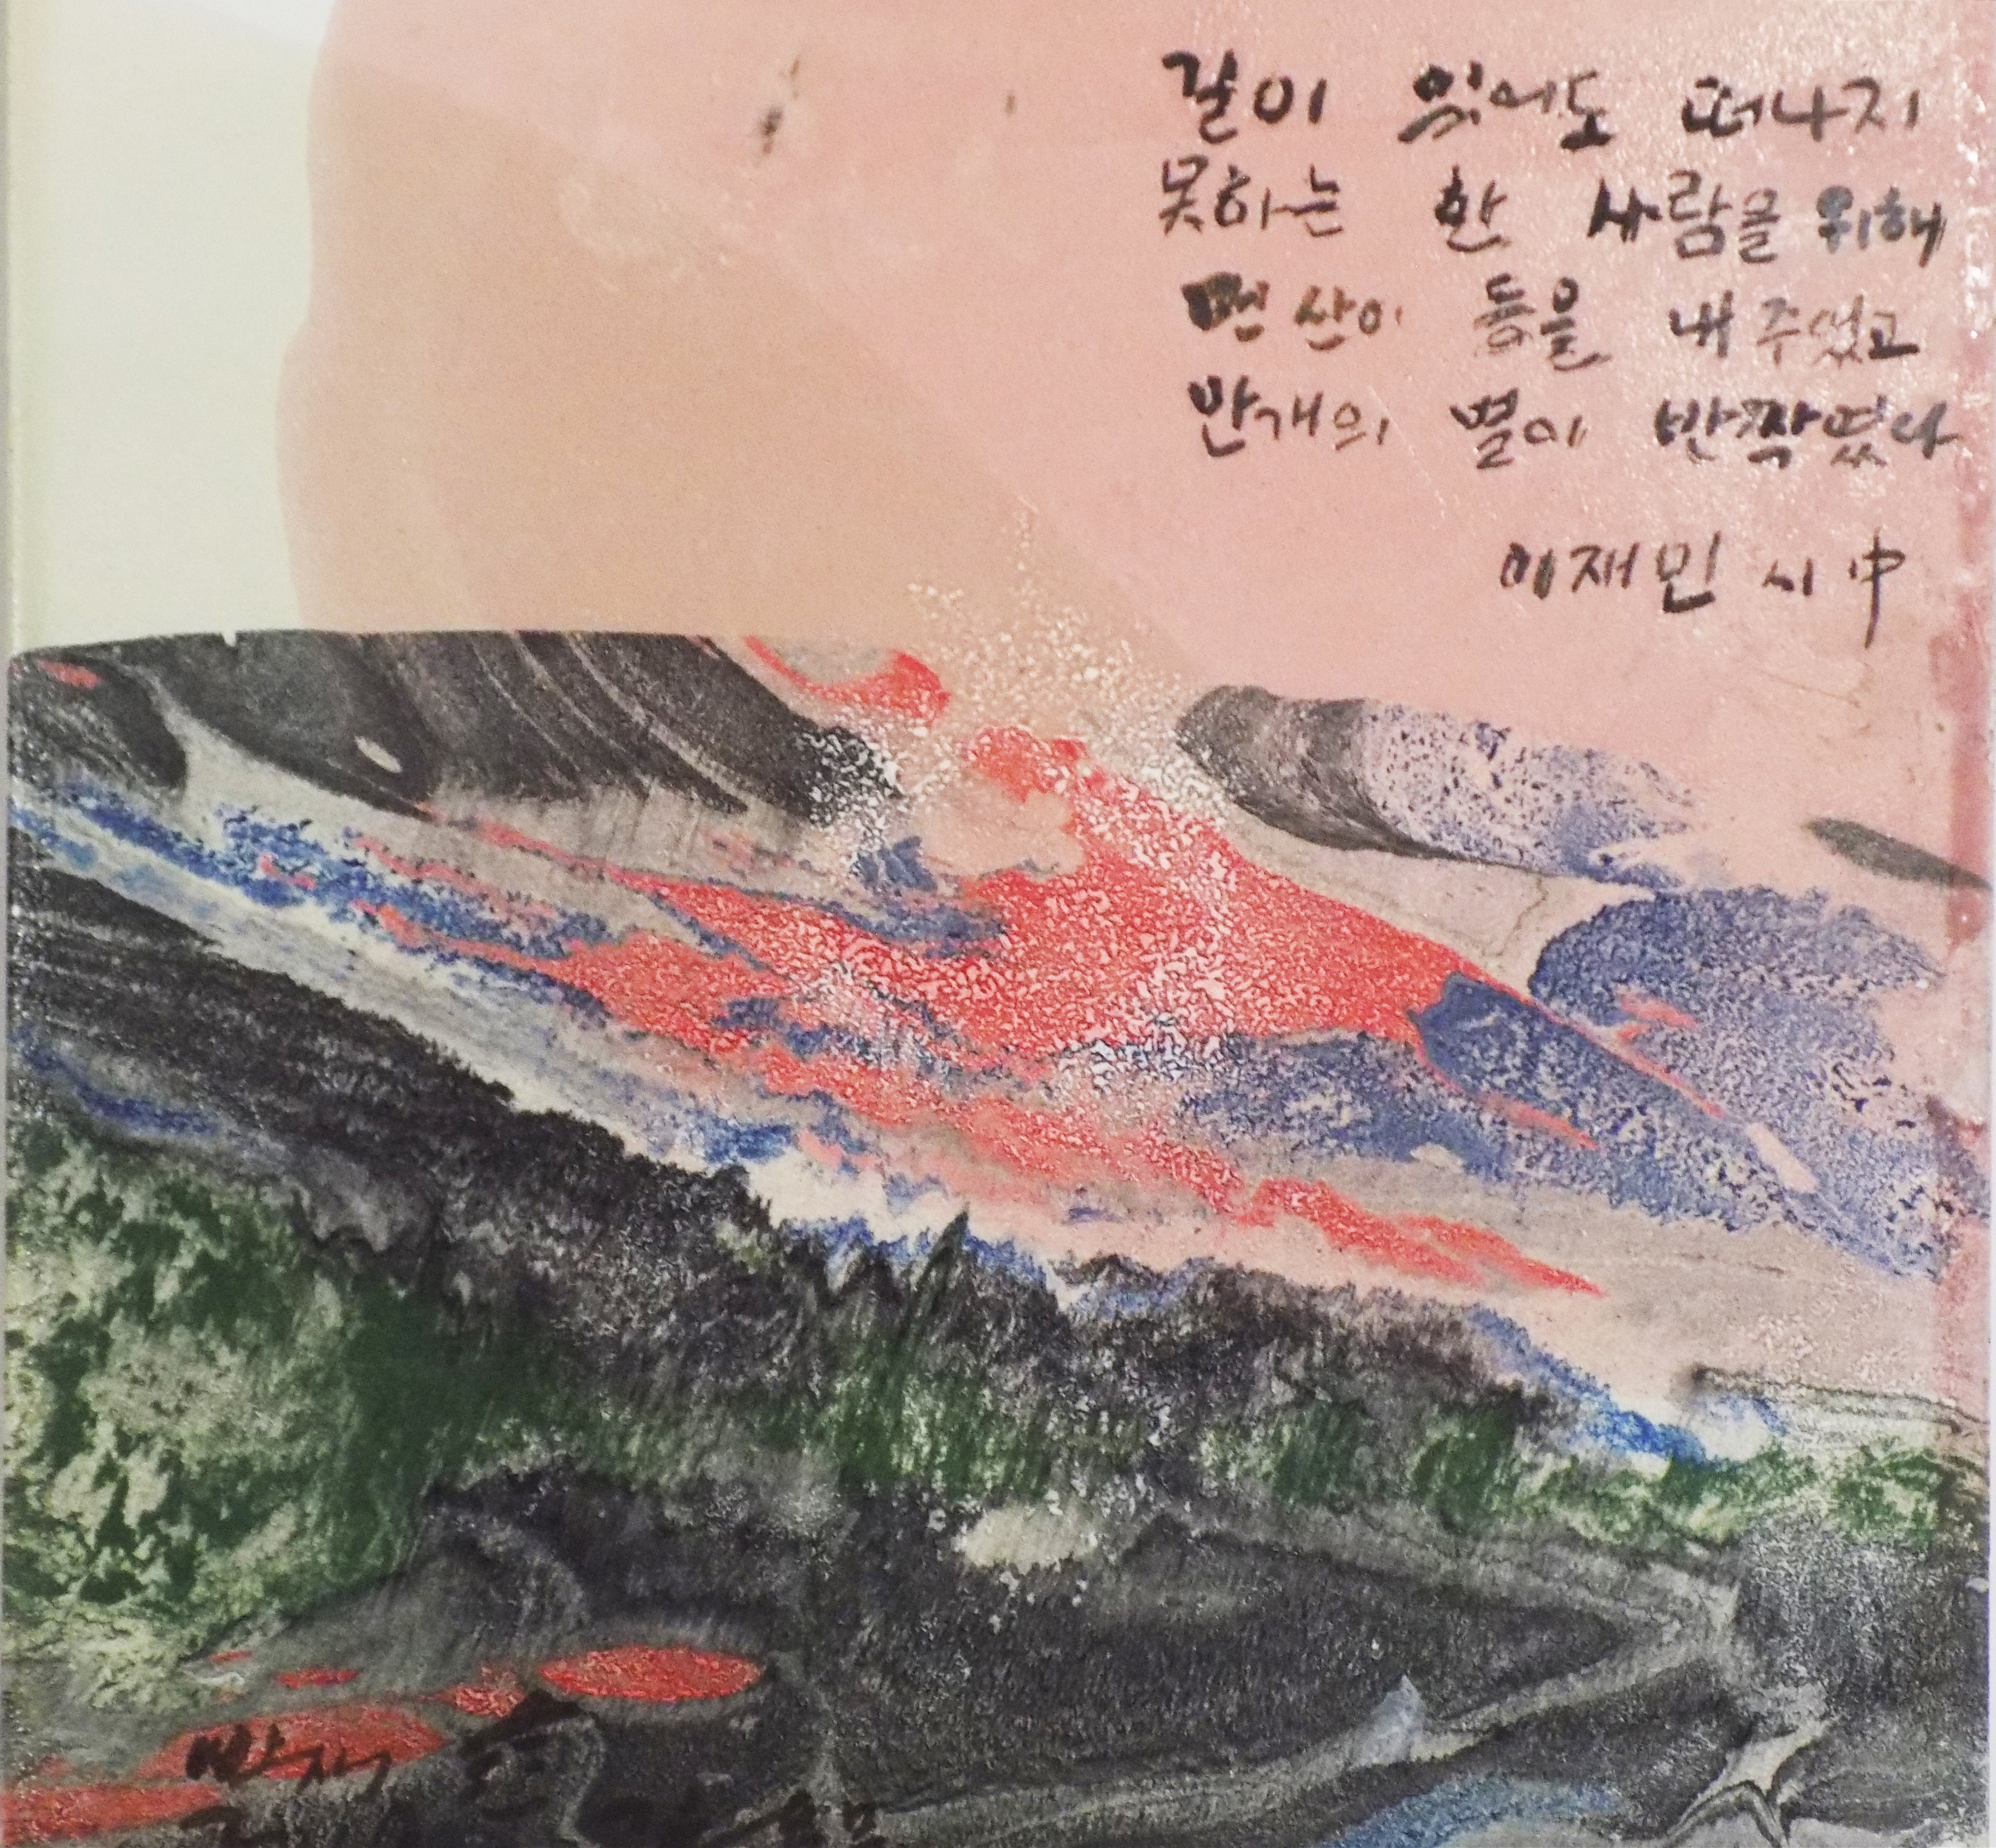 길이 있어도 떠나지
못하는 한 사람을 위해
먼 산이 등을 내 주었고
만개의 별이 반짝였다
이재민 시 中